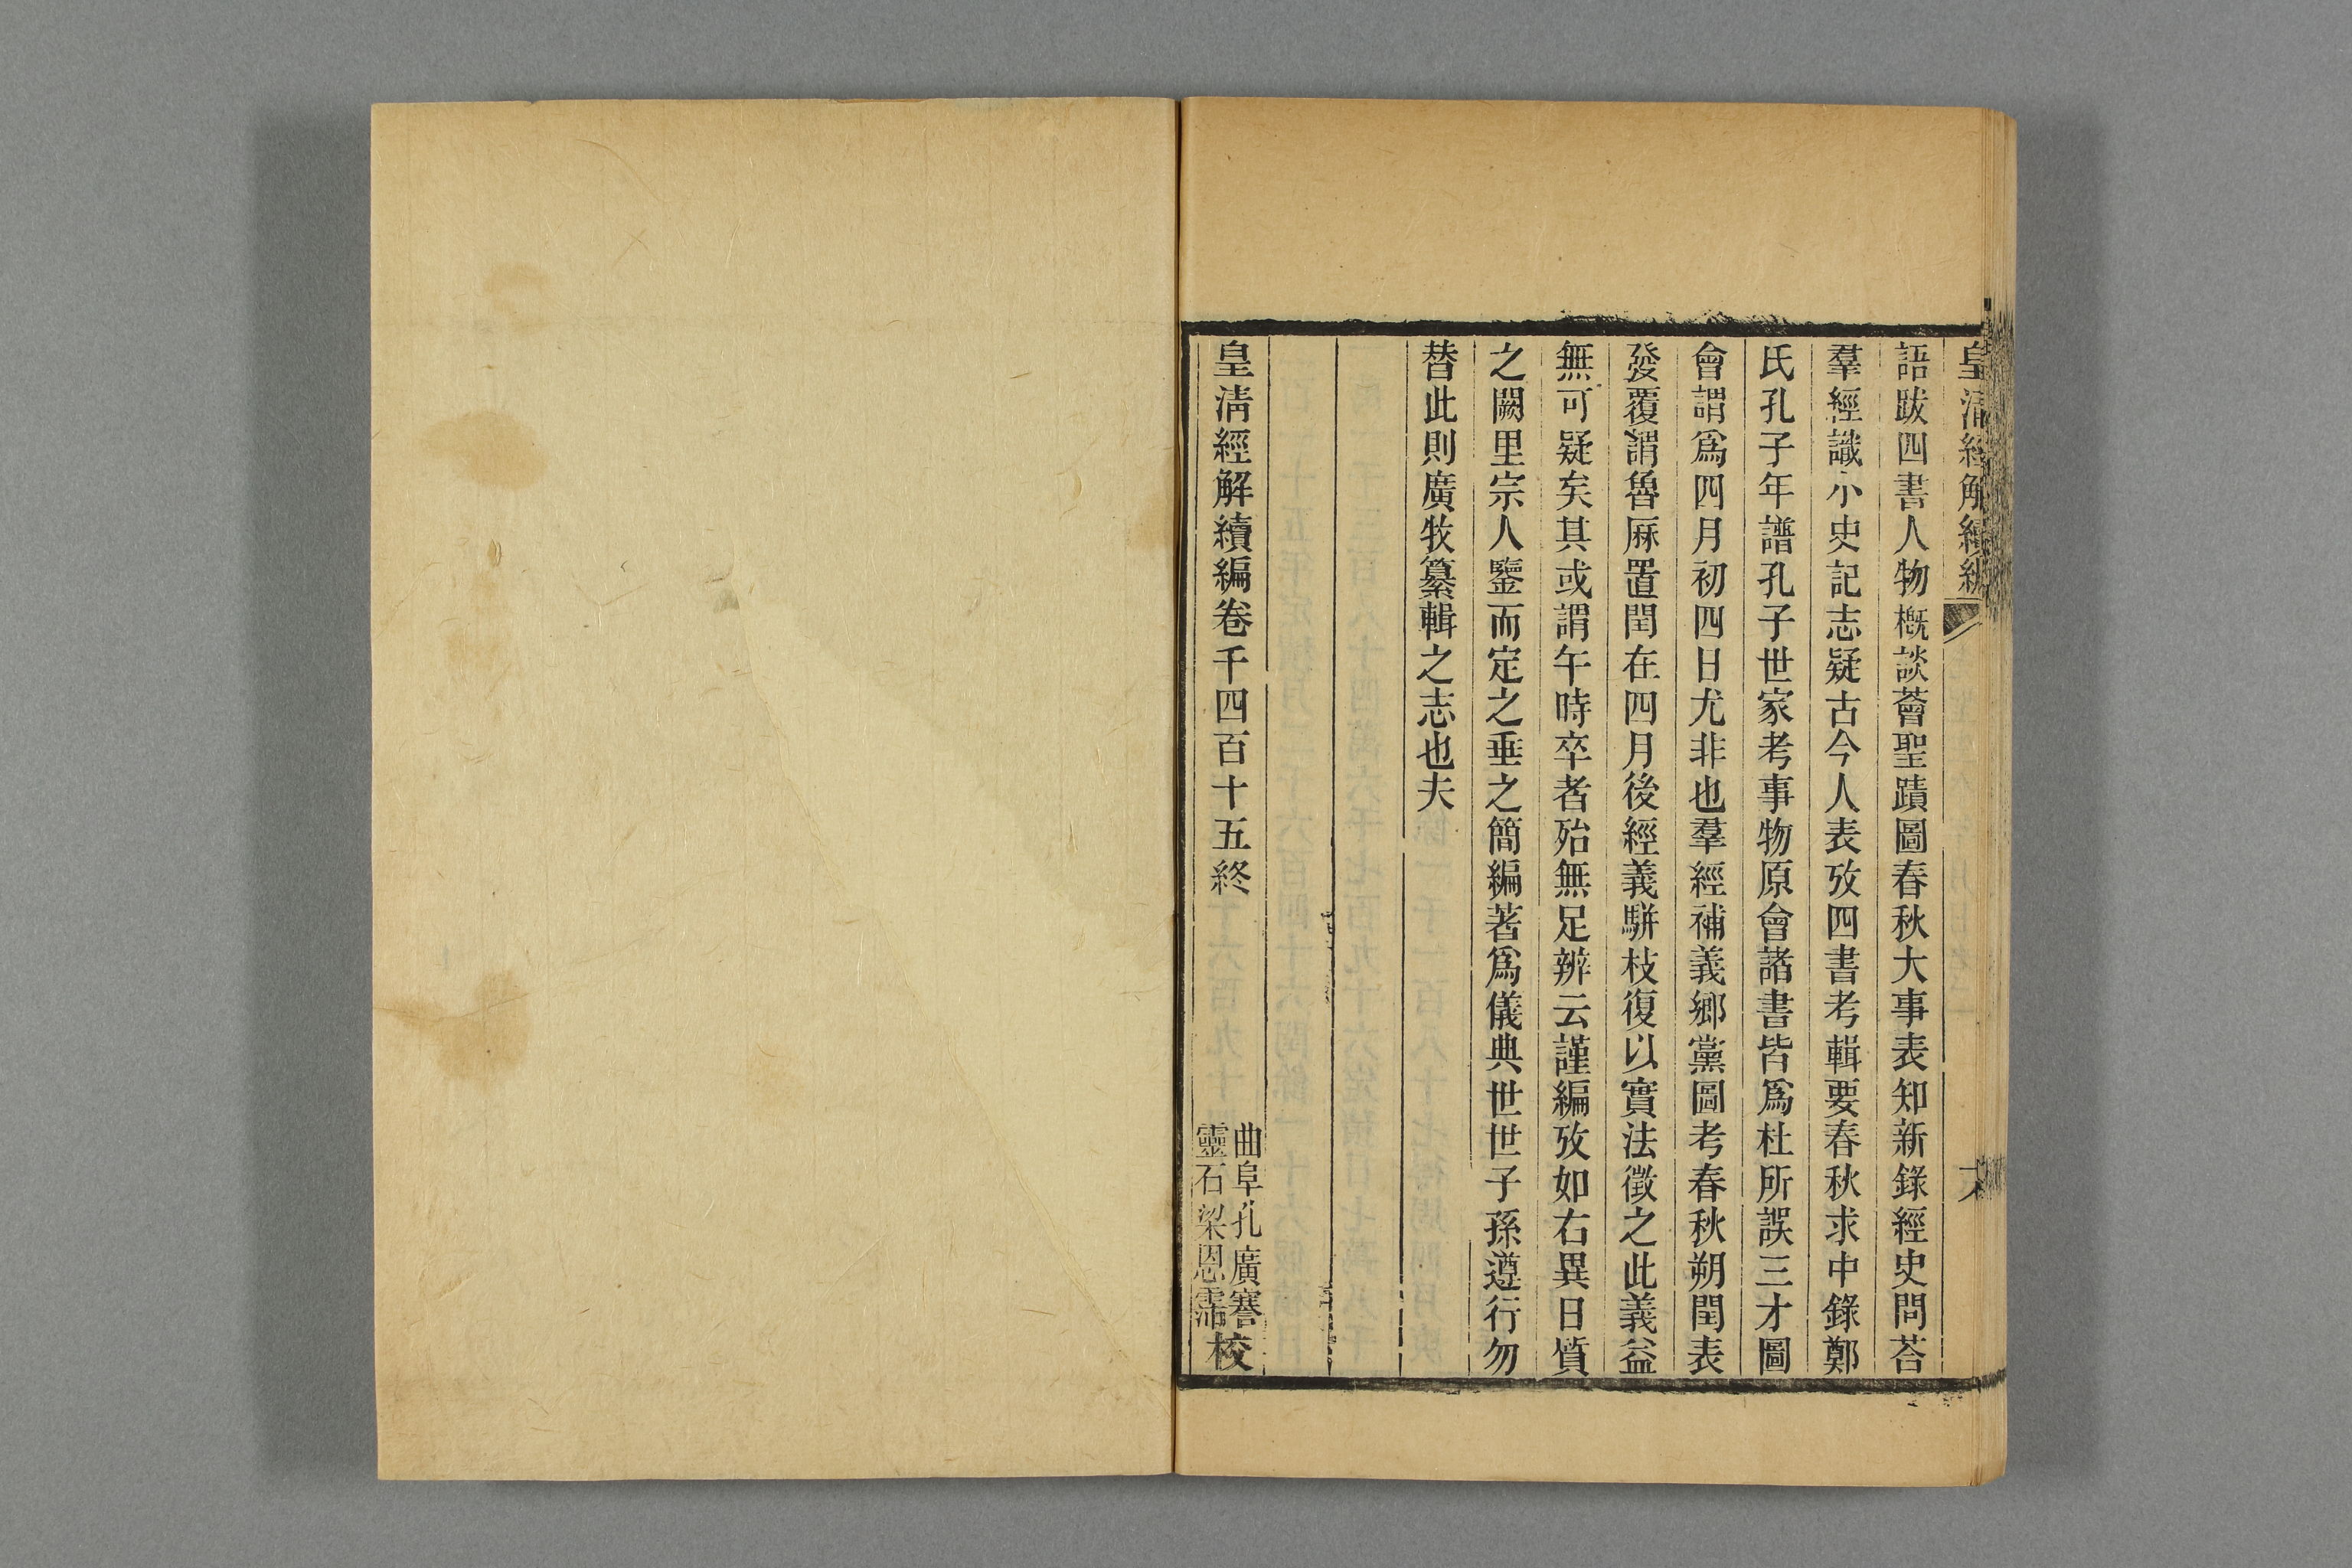 皇清經解續編
六
語跋四書人物概談薈聖蹟圖春秋大事表知新錄經史問荅
羣經識小史記志疑古今人表攷四書考輯要春秋求中錄鄭
氏孔子年譜孔子世家考事物原會諸書皆爲杜所誤三才圖
會謂爲四月初四日尤非也羣經補義鄉黨圖考春秋朔閏表
發覆謂魯厤置閏在四月後經義駢枝復以實法徵之此義益
無可疑矣其或謂午時卒者殆無足辨云謹編攷如右異日質
之闕里宗人鑒而定之垂之簡編著爲儀典世世子孫遵行勿
替此則廣牧纂輯之志也夫
皇清經解續編卷千四百十五終
曲阜孔廣謇
靈石梁恩霈
校